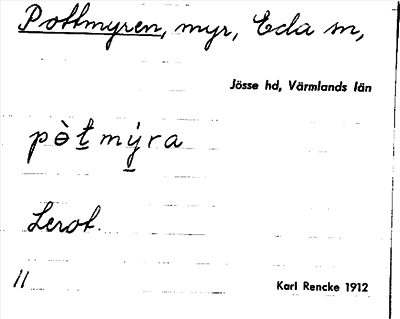 Pottmyren, myr, Eda sn,
Jösse hd, Värmlands län
pòt mýra
Lerot.
11
Karl Rencke 1912